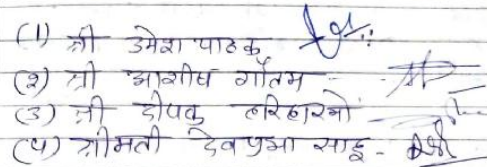 (1) श्री उमेश पाठक
(२) श्री आशीष गौतम -
(3) श्री दीपक
(4) श्रीमती देवप्रभा साहू -